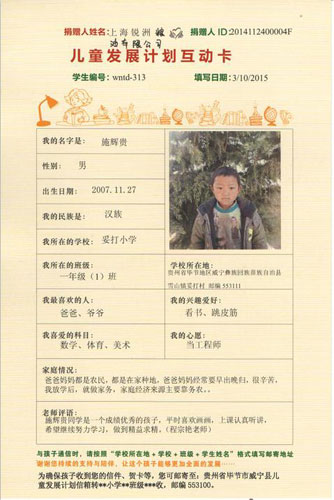 捐赠人姓名:上海锐洲 捐赠人 ID:2014112400004F
有限公司
儿童发展计划互动卡
学生编号:wntd-313 填写日期:3/10/2015
我的名字是: 施辉贵
性别: 男
出生日期: 2007.11.27
我的民族是: 汉族
我所在的学校: 妥打小学
我所在的班级:
一年级(1)班
学校所在地:
贵州省毕节地区威宁彝族回族苗族自治县
雪山镇妥打村 邮编 553111
我最喜欢的人:
爸爸、爷爷
我的兴趣爱好:
看书、跳皮筋
我喜爱的科目:
数学、体育、美术
我的心愿:
当工程师
家庭情况:
爸爸妈妈都是农民,都是在家种地,爸爸妈妈经常要早出晚归,很辛苦,
我放学后,就做家务,家庭经济来源主要靠务农。
老师评语:
施辉贵同学是一个成绩优秀的孩子,平时喜欢画画,上课认真听讲,
希望继续努力学习,做到精益求精。(程宗艳老师)
与孩子通信时,请按照“学校所在地+学校+班级+学生姓名”格式填写邮寄地址
谢谢您持续的支持与陪伴,让这个孩子能够更加全面的发展
为确保孩子收到您的信件、贺卡等,您可邮寄至:贵州省毕节市威宁县儿
童发展计划信箱转**小学**班级***收,邮编 553100.